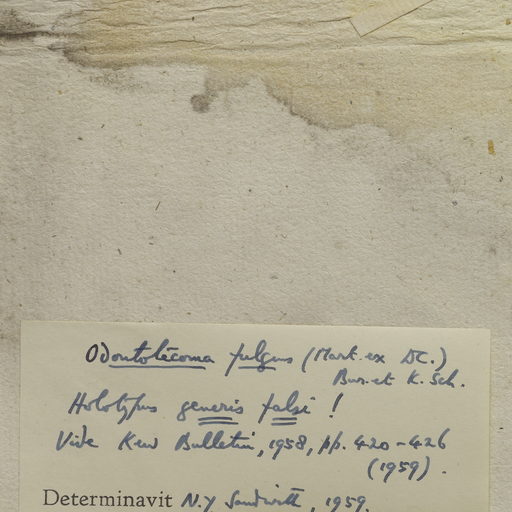 Odontotecoma fulgens (Mart. ex DC.)
Bur. et K. Sch.
Holotypus generis falsi !
Vide Kew Bulletin, 1958, pp. 420-426
(1959).
Determinavit N.Y. Sandwith, 1959.